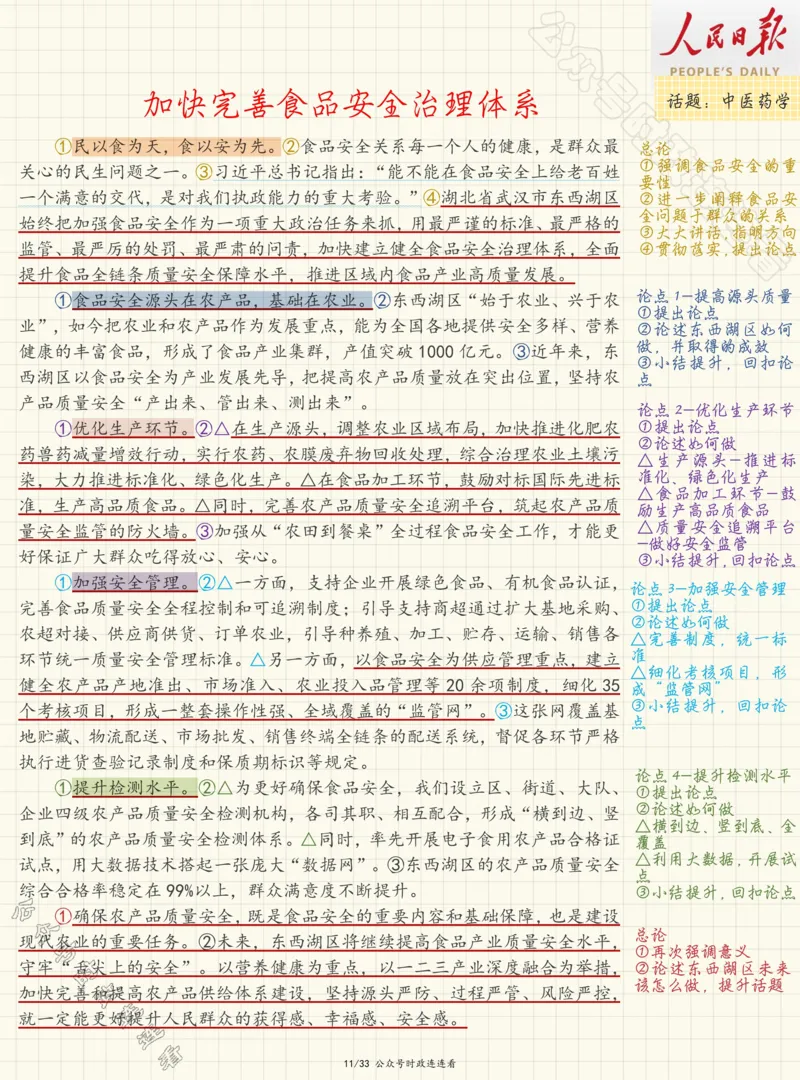 人民日报
PEOPLE'S DAILY
话题：中医药学
加快完善食品安全治理体系
①民以食为天，食以安为先。②食品安全关系每一个人的健康，是群众最
关心的民生问题之一。③习近平总书记指出：“能不能在食品安全上给老百姓
一个满意的交代，是对我们执政能力的重大考验。”④湖北省武汉市东西湖区
始终把加强食品安全作为一项重大政治任务来抓，用最严谨的标准、最严格的
监管、最严厉的处罚、最严肃的问责，加快建立健全食品安全治理体系，全面
提升食品全链条质量安全保障水平，推进区域内食品产业高质量发展。
①食品安全源头在农产品，基础在农业。②东西湖区“始于农业、兴于农
业”，如今把农业和农产品作为发展重点，能为全国各地提供安全多样、营养
健康的丰富食品，形成了食品产业集群，产值突破1000亿元。③近年来，东
西湖区以食品安全为产业发展先导，把提高农产品质量放在突出位置，坚持农
产品质量安全“产出来、管出来、测出来”。
①优化生产环节。②△在生产源头，调整农业区域布局，加快推进化肥农
药兽药减量增效行动，实行农药、农膜废弃物回收处理，综合治理农业土壤污
染，大力推进标准化、绿色化生产。△在食品加工环节，鼓励对标国际先进标
准，生产高品质食品。△同时，完善农产品质量安全追溯平台，筑起农产品质
量安全监管的防火墙。③加强从“农田到餐桌”全过程食品安全工作，才能更
好保证广大群众吃得放心、安心。
①加强安全管理。②△一方面，支持企业开展绿色食品、有机食品认证，
完善食品质量安全全程控制和可追溯制度；引导支持商超通过扩大基地采购、
农超对接、供应商供货、订单农业，引导种养殖、加工、贮存、运输、销售各
环节统一质量安全管理标准。△另一方面，以食品安全为供应管理重点，建立
健全农产品产地准出、市场准入、农业投入品管理等20余项制度，细化35
个考核项目，形成一整套操作性强、全域覆盖的“监管网”。③这张网覆盖基
地贮藏、物流配送、市场批发、销售终端全链条的配送系统，督促各环节严格
执行进货查验记录制度和保质期标识等规定。
①提升检测水平。②△为更好确保食品安全，我们设立区、街道、大队、
企业四级农产品质量安全检测机构，各司其职、相互配合，形成“横到边、竖
到底”的农产品质量安全检测体系。△同时，率先开展电子食用农产品合格证
试点，用大数据技术搭起一张庞大“数据网”。③东西湖区的农产品质量安全
综合合格率稳定在99%以上，群众满意度不断提升。
①确保农产品质量安全，既是食品安全的重要内容和基础保障，也是建设
现代农业的重要任务。②未来，东西湖区将继续提高食品产业质量安全水平，
守牢“舌尖上的安全”。以营养健康为重点，以一二三产业深度融合为举措，
加快完善和提高农产品供给体系建设，坚持源头严防、过程严管、风险严控，
就一定能更好提升人民群众的获得感、幸福感、安全感。
总论
①强调食品安全的重
要性
②进一步阐释食品安
全问题于群众的关系
③大大讲话，指明方向
④贯彻落实，提出论点
论点1—提高源头质量
①提出论点
②论述东西湖区如何
做，并取得的成放
③小结提升，回扣论
点
论点2—优化生产环节
①提出论点
②论述如何做
△生产源头—推进标
准化、绿色化生产
△食品加工环节—鼓
励生产高品质食品
△质量安全追溯平台
—做好安全监管
③小结提升，回扣论点
论点3—加强安全管理
①提出论点
②论述如何做
△完善制度，统一标
准
△细化考核项目，形
成“监管网”
③小结提升，回扣论
点
论点4—提升检测水平
①提出论点
②论述如何做
△横到边、竖到底、全
覆盖
△利用大数据，开展试
点
③小结提升，回扣论点
总论
①再次强调意义
②论述东西湖区未来
该怎么做，提升话题
11/33 公众号时政连连看
公众号时政连连看
公众号时政连连看